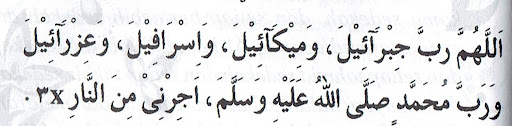 اَللَّهُمَّ رَبَّ جِبْرَآئِيْلَ، وَمِيْكَآئِيْلَ، وَاِسْرَافِيْلَ، وَعِزْرَآئِيْلَ
وَرَبَّ مُحَمَّدٍ صَلَّى اللهُ عَلَيْهِ وَسَلَّمَ، اَجِرْنِيْ مِنَ النَّارِ ٣x .